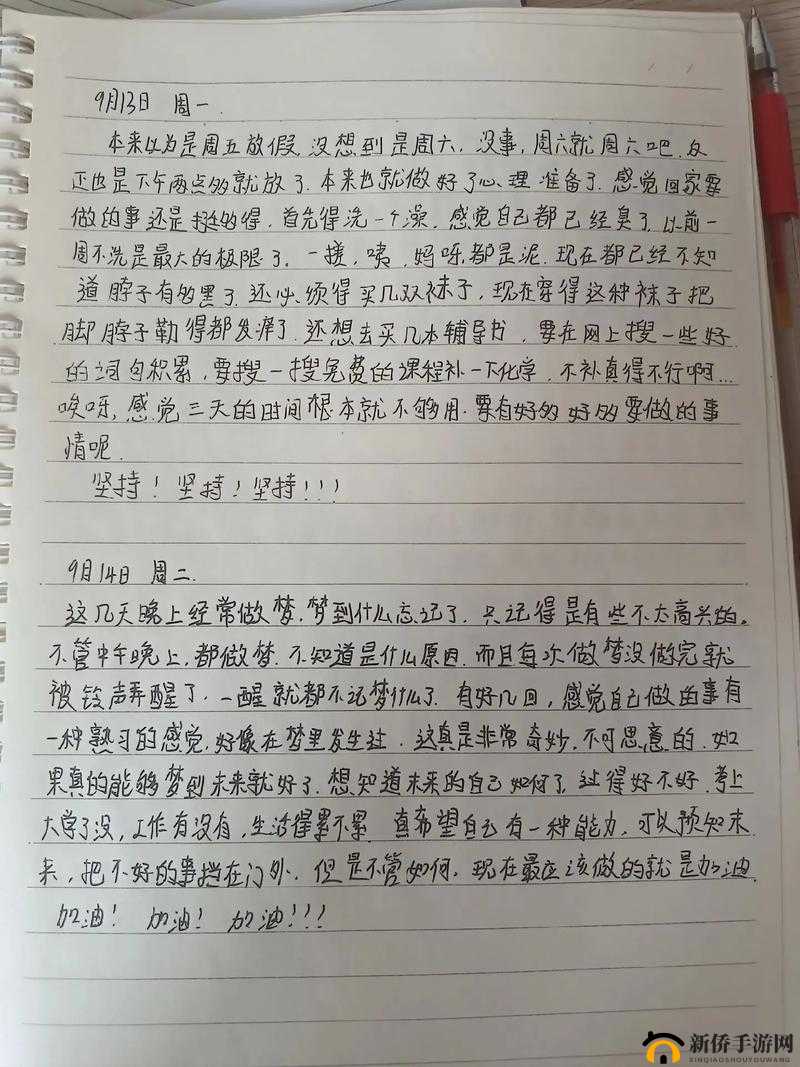 9月13日 周一.
本来以为是周五放假,没想到是周六,没事,周六就周六吧.反
正也是下午两点多就放了.本来也就做好了心理准备了.感觉回家要
做的事还是挺多得,首先得洗一个澡,感觉自己都已经臭了,以前一
周不洗是最大的极限了.一搓,咦,妈呀,都是泥.现在都已经不知
道脖子有多黑了.还必须得买几双袜子,现在穿得这种袜子把
脚脖子勒得都发涨了.还想去买几本辅导书,要在网上搜一些好
的词句积累,要搜一搜免费的课程补一下化学,不补真得不行啊...
唉呀,感觉三天的时间根本就不够用.要有好多好多要做的事
情呢.
坚持!坚持!坚持!!!
9月14日 周二.
这几天晚上经常做梦.梦到什么忘记了.只记得是有些不太高兴的。
不管中午晚上,都做梦.不知道是什么原因.而且每次做梦没做完就
被铃声弄醒了.一醒就都不记梦什么了.有好几回,感觉自己做的事有
一种熟习的感觉.好像在梦里发生过.这真是非常奇妙,不可思意的.如
果真的能够梦到未来就好了.想知道未来的自己如何了.过得好不好.考上
大学了没,工作有没有,生活得累不累.真希望自己有一种能力,可以预知未
来,把不好的事挡在门外.但是不管如何,现在最应该做的就是加油.
加油!加油!加油!!!
新侨手游网
XINQIAOSHOUYOUWANG